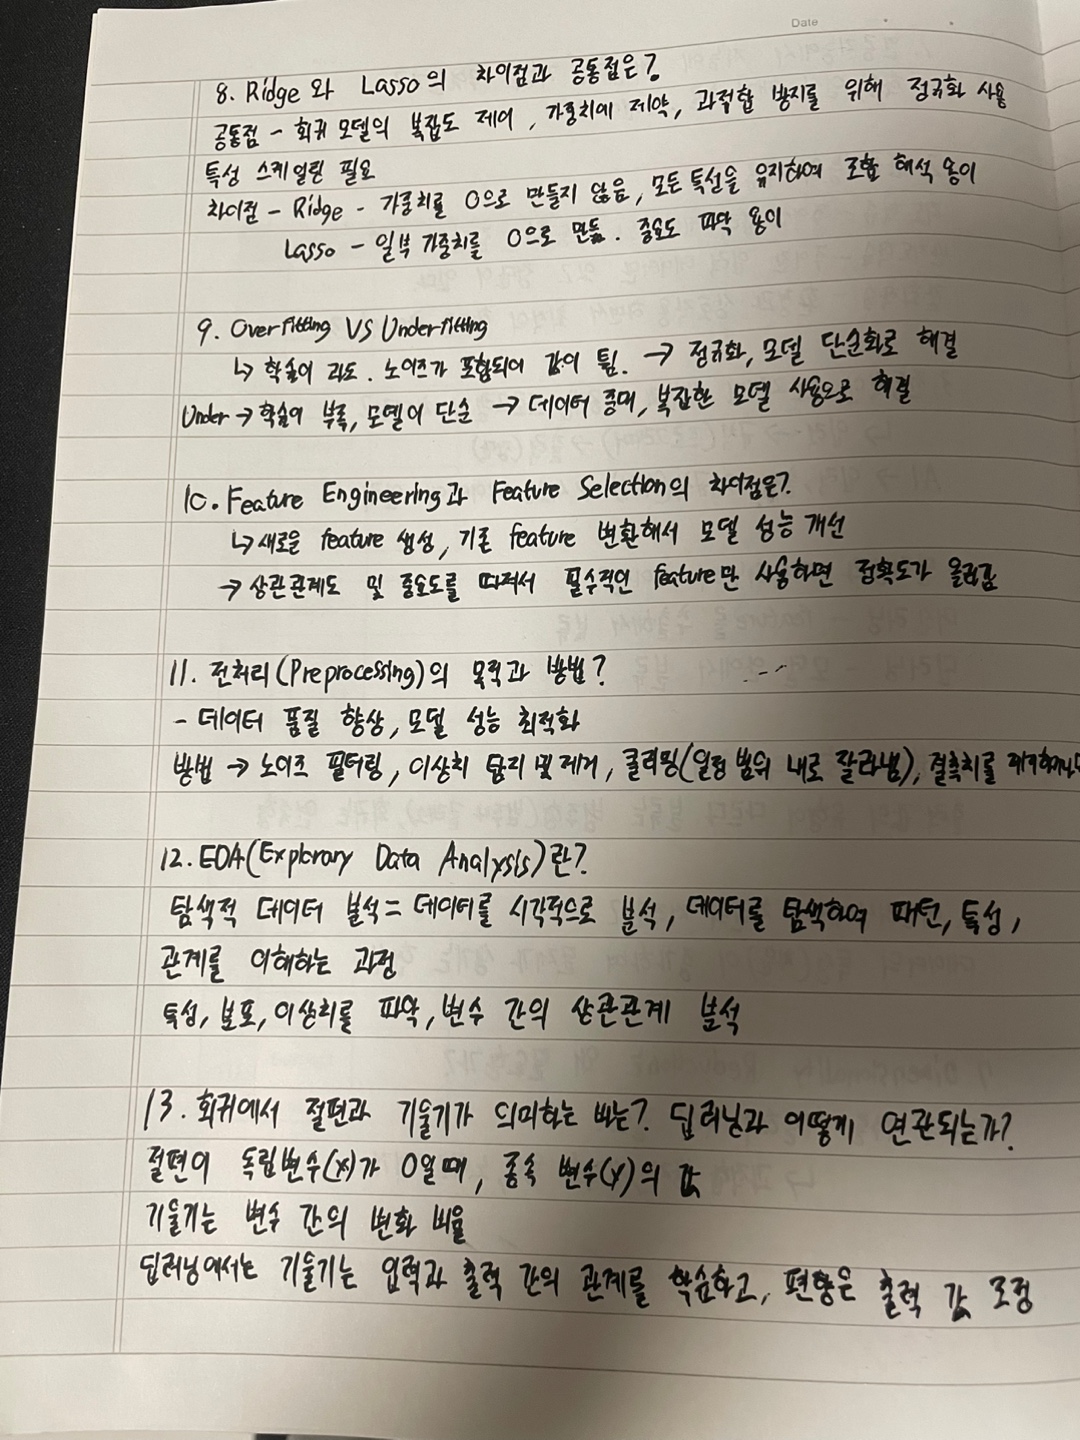 Date
8. Ridge 와 Lasso의 차이점과 공통점은?
공통점 - 회귀 모델의 복잡도 제어, 가중치에 제약, 과적합 방지를 위해 정규화 사용
특성 스케일링 필요
차이점 - Ridge - 가중치를 0으로 만들지 않음, 모든 특성을 유지하여 조합 해석 용이
Lasso - 일부 가중치를 0으로 만듦. 중요도 파악 용이
9. Overfitting VS Underfitting
↳ 학습이 과도. 노이즈가 포함되어 값이 튐. → 정규화, 모델 단순화로 해결
Under → 학습이 부족, 모델이 단순 → 데이터 증대, 복잡한 모델 사용으로 해결
10. Feature Engineering과 Feature Selection의 차이점은?
↳ 새로운 feature 생성, 기존 feature 변환해서 모델 성능 개선
→ 상관관계도 및 중요도를 따져서 필수적인 feature만 사용하면 정확도가 올라감
11. 전처리(Preprocessing)의 목적과 방법?
- 데이터 품질 향상, 모델 성능 최적화
방법 → 노이즈 필터링, 이상치 탐지 및 제거, 클리핑(일정 범위 내로 잘라냄), 결측치를
12. EDA(Explorary Data Analysis)란?
탐색적 데이터 분석 = 데이터를 시각적으로 분석, 데이터를 탐색하여 패턴, 특성,
관계를 이해하는 과정
특성, 분포, 이상치를 파악, 변수 간의 상관관계 분석
13. 회귀에서 절편과 기울기가 의미하는 바는? 딥러닝과 어떻게 연관되는가?
절편이 독립변수(x)가 0일때, 종속 변수(y)의 값
기울기는 변수 간의 변화 비율
딥러닝에서는 기울기는 입력과 출력 간의 관계를 학습하고, 편향은 출력 값 조정